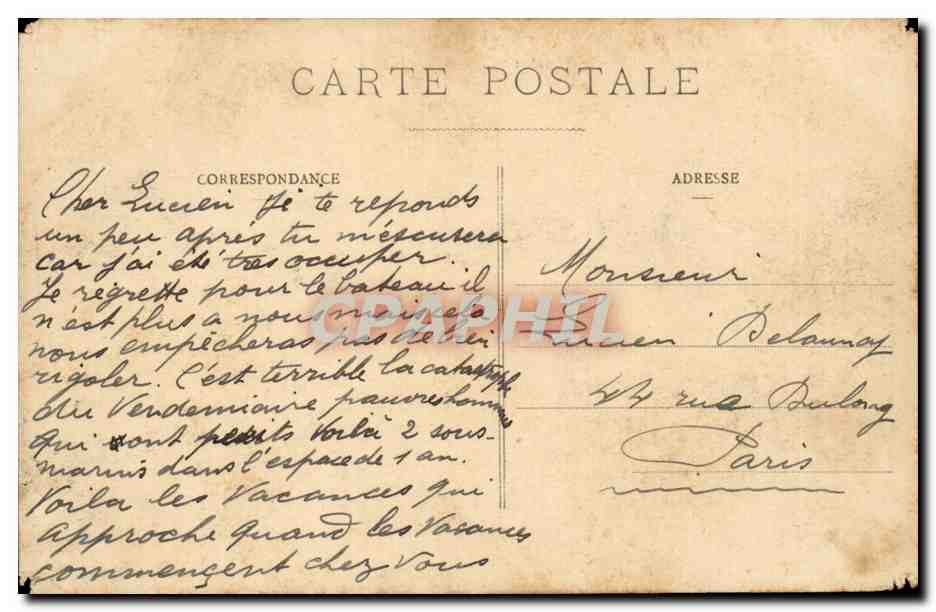 CARTE POSTALE
CORRESPONDANCE
Cher Lucien Je te reponds
un peu après tu m'escusera
car j'ai été tres occuper.
Je regrette pour le bateau il
n'est plus a nous mais cela
nous empêcheras pas de bien
rigoler. C'est terrible la catastrophe
du Vendemiaire pauvres hommes
qui sont perits Voilà 2 sous-
marins dans l'espace de 1 an.
Voila les Vacances qui
approche quand les Vacances
commençent chez Vous
ADRESSE
Monsieur
Lucien Delaunay
44 rue Dulong
Paris
CPAPHIL